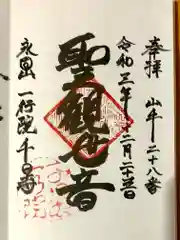 奉拝 山手二十八番
令和三年 二月二十 日
聖観世音
永固山 一行院千日寺